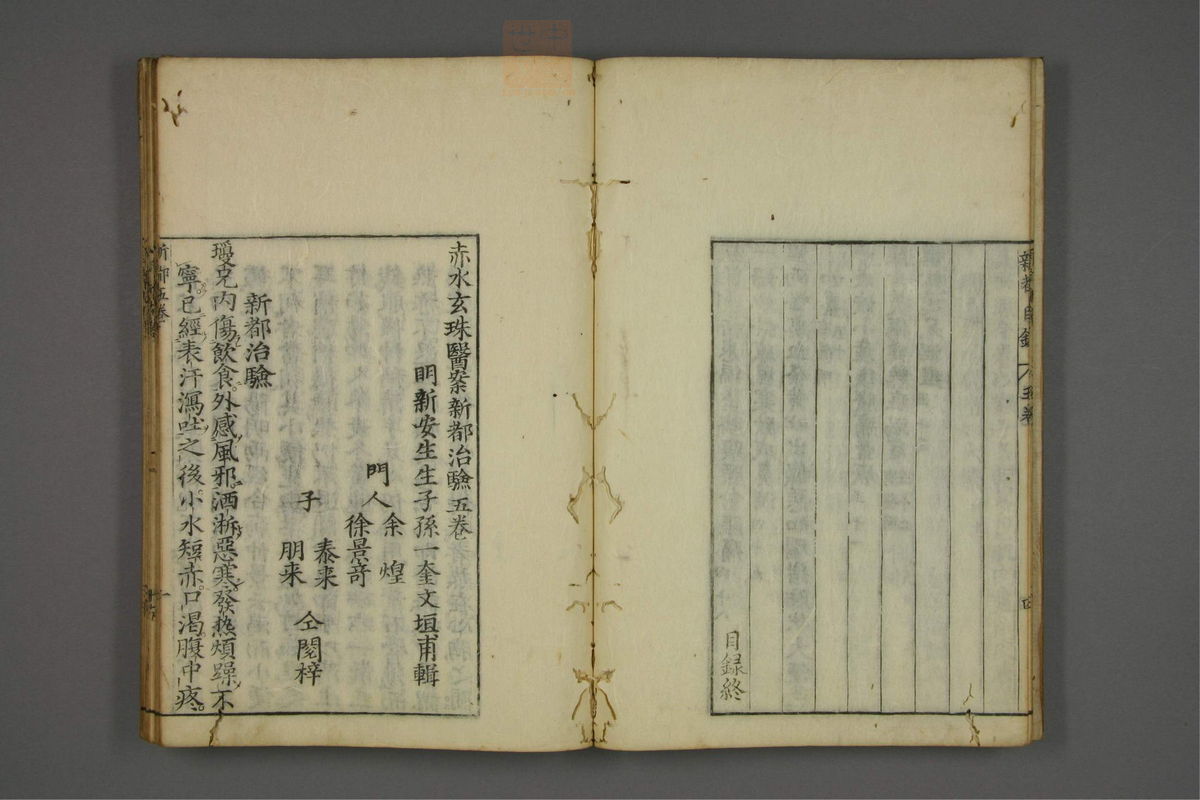 新都目錄
五卷
目録終
赤水玄珠醫案新都治驗五卷
明新安生生子孫一奎文垣甫輯
門人
余煌
徐景奇
子
泰来
朋来
仝閱梓
新都治驗
璦兄内傷飲食外感風邪洒淅惡寒發热煩躁不
寧已經表汗瀉吐之後小水短赤口渴腹中疼
新都五卷